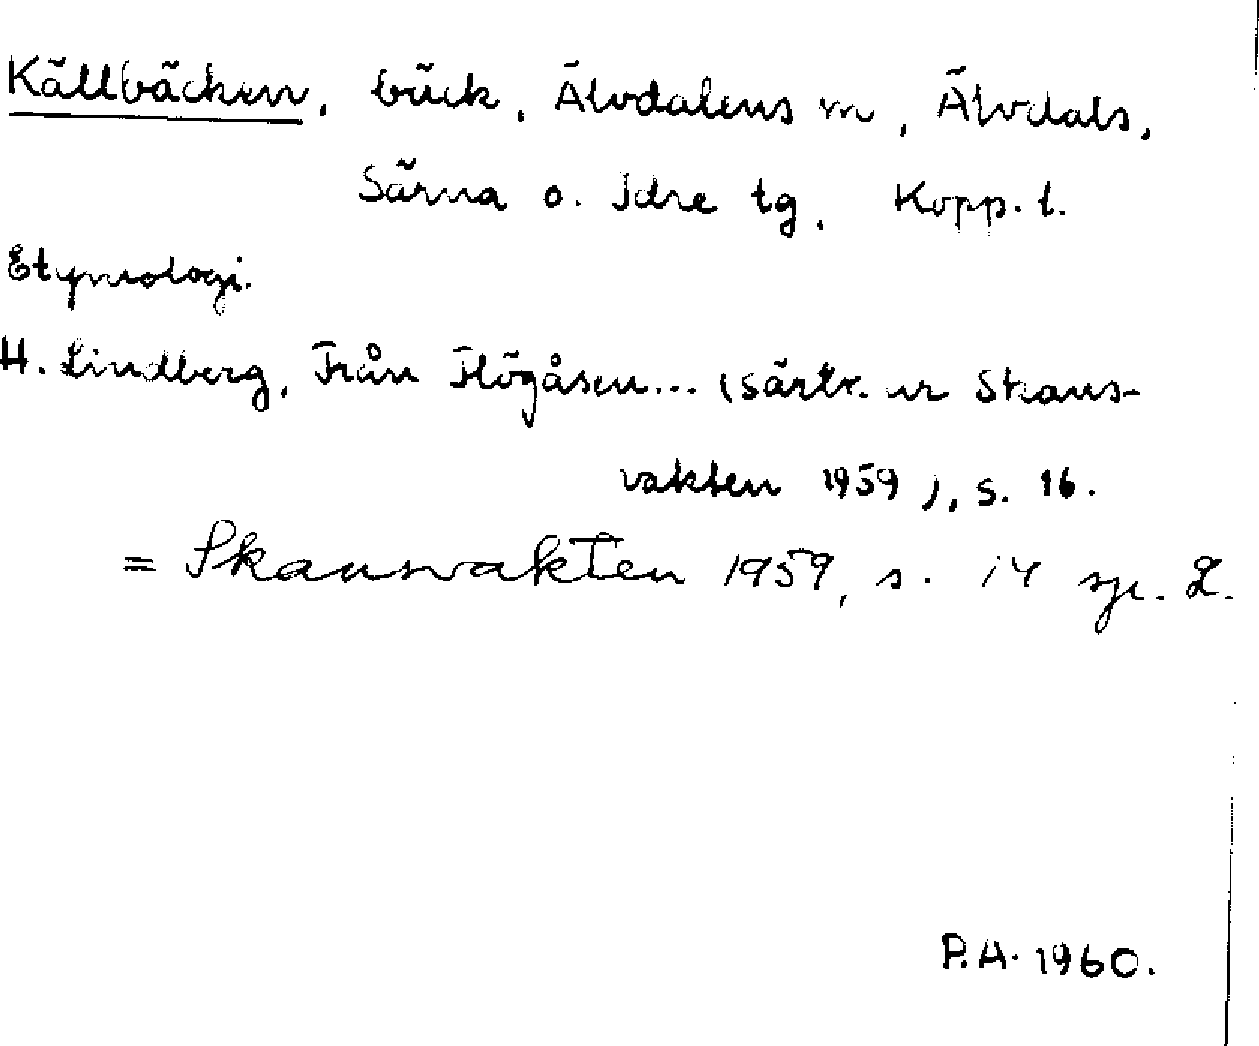 Källbäcken, bäck, Älvdalens sn, Älvdals,
Särna o. Idre tg, Kopp. l.
Etymologi.
H. Lindberg, Från Högåsen... (särtr. ur Skans-
vakten 1959), s. 16.
= Skansvakten 1959, s. 14 sp. 2.
P.A. 1960.